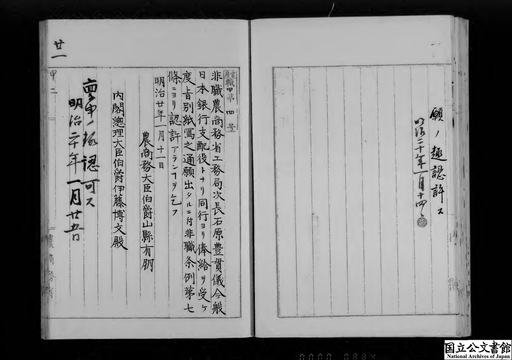 願ノ趣認許ス
明治二十年一月十四日
非職農商務省工務局次長石原豊貫儀今般
日本銀行支配役トナリ同行ヨリ俸給ヲ受ケ
度旨別紙寫之通願出タルニ付非職条例第七
條ニヨリ認許アランヿヲ乞フ
明治廿年一月十一日
農商務大臣伯爵山縣有朋
内閣總理大臣伯爵伊藤博文殿
明治二十年一月廿五日
廿一
国立公文書館
National Archives of Japan